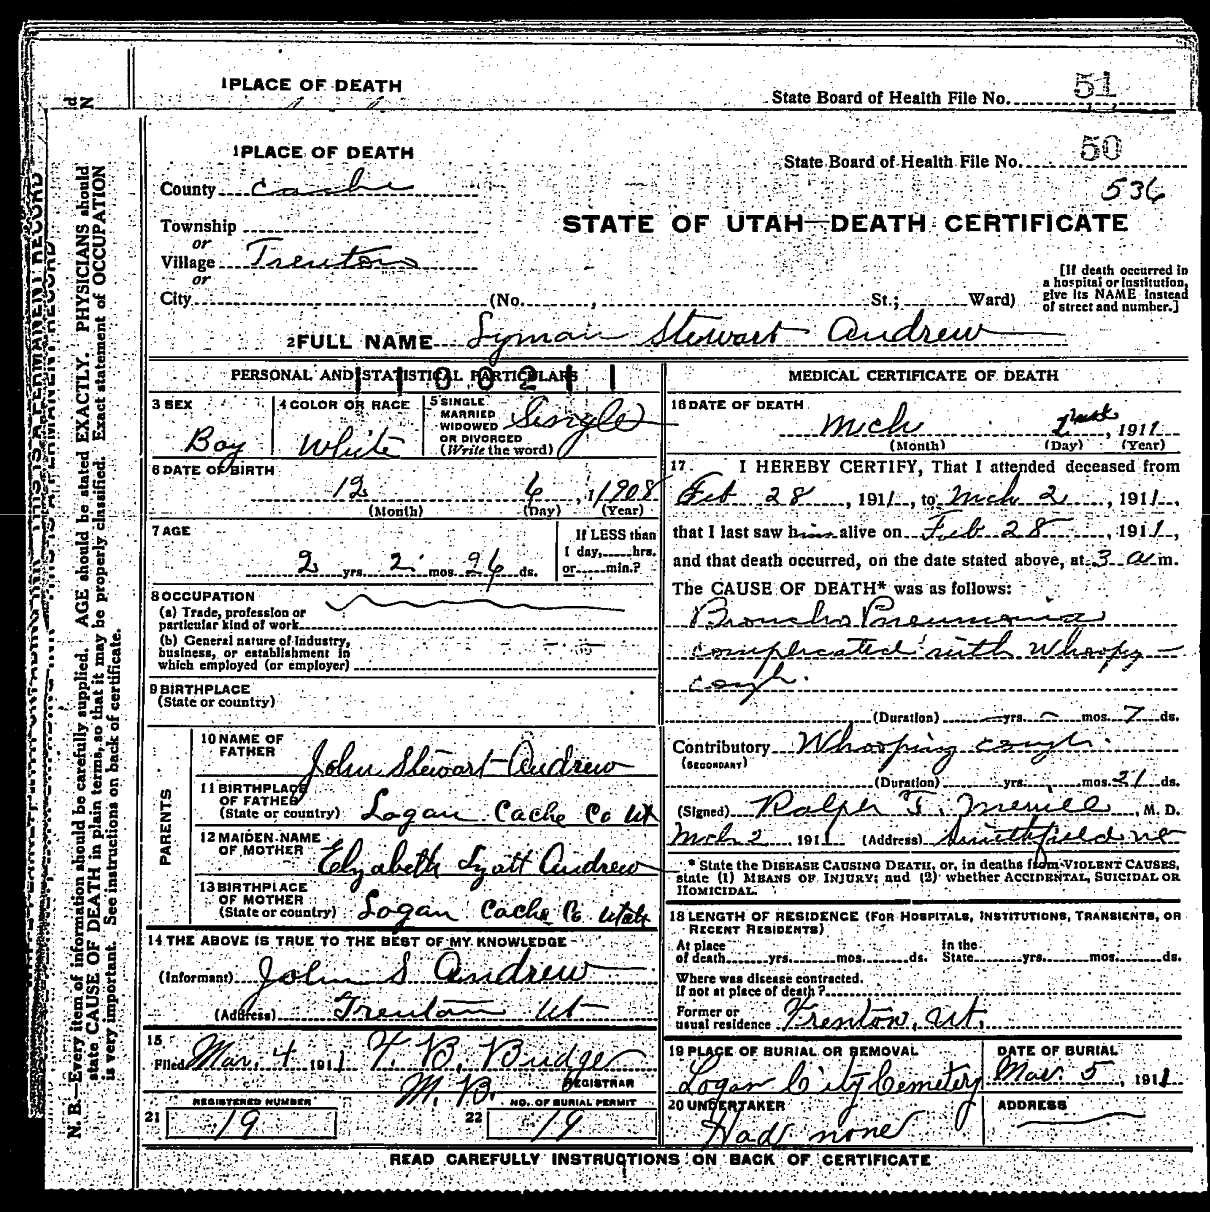 1 PLACE OF DEATH
State Board of Health File No. 51
1 PLACE OF DEATH
State Board of Health File No. 50
County Cache
536
STATE OF UTAH—DEATH CERTIFICATE
Township
or
Village Trenton
or
City (No. , St.; Ward)
[If death occurred in
a hospital or institution,
give its NAME instead
of street and number.]
2 FULL NAME Lyman Stewart Andrew
PERSONAL AND STATISTICAL PARTICULARS
3 SEX
Boy
4 COLOR OR RACE
White
5 SINGLE
MARRIED
WIDOWED
OR DIVORCED
(Write the word)
Single
6 DATE OF BIRTH
12 6, 1908
(Month) (Day) (Year)
7 AGE
2 yrs. 2 mos. 26 ds.
If LESS than
1 day, hrs.
or min.?
8 OCCUPATION
(a) Trade, profession or
particular kind of work
(b) General nature of industry,
business, or establishment in
which employed (or employer)
9 BIRTHPLACE
(State or country)
PARENTS
10 NAME OF
FATHER
John Stewart Andrew
11 BIRTHPLACE
OF FATHER
(State or country)
Logan Cache Co Ut
12 MAIDEN NAME
OF MOTHER
Elyabeth Andrew
13 BIRTHPLACE
OF MOTHER
(State or country)
Logan Cache Co. Utah
14 THE ABOVE IS TRUE TO THE BEST OF MY KNOWLEDGE
(Informant) John S Andrew
(Address) Trenton Ut
15
Filed Mar. 4 1911 T. B. Budge
M. D. REGISTRAR
REGISTERED NUMBER
21 19
NO. OF BURIAL PERMIT
22 19
MEDICAL CERTIFICATE OF DEATH
16 DATE OF DEATH
Mch , 1911
(Month) (Day) (Year)
17. I HEREBY CERTIFY, That I attended deceased from
Feb 28, 1911, to Mch 2, 1911,
that I last saw him alive on Feb 28, 1911,
and that death occurred, on the date stated above, at 3 a m.
The CAUSE OF DEATH* was as follows:
Broncho Pneumonia
complicated with Whoopg-
cough.
(Duration) – yrs. – mos. 7 ds.
Contributory Whooping cough.
(SECONDARY)
(Duration) yrs. mos. 21 ds.
(Signed) Ralph T. Merrill, M. D.
Mch 2 1911 (Address) Smithfield Ut
* State the DISEASE CAUSING DEATH, or, in deaths from VIOLENT CAUSES,
state (1) MEANS OF INJURY; and (2) whether ACCIDENTAL, SUICIDAL OR
HOMICIDAL.
18 LENGTH OF RESIDENCE (FOR HOSPITALS, INSTITUTIONS, TRANSIENTS, OR
RECENT RESIDENTS)
At place
of death yrs. mos. ds.
In the
State yrs. mos. ds.
Where was disease contracted.
If not at place of death?
Former or
usual residence Trenton, Ut.
19 PLACE OF BURIAL OR REMOVAL
Logan City Cemetery
DATE OF BURIAL
Mar. 5, 1911
20 UNDERTAKER
Had none
ADDRESS
READ CAREFULLY INSTRUCTIONS ON BACK OF CERTIFICATE
N. B.—Every item of information should be carefully supplied. AGE should be stated EXACTLY. PHYSICIANS should
state CAUSE OF DEATH in plain terms, so that it may be properly classified. Exact statement of OCCUPATION
is very important. See instructions on back of certificate.